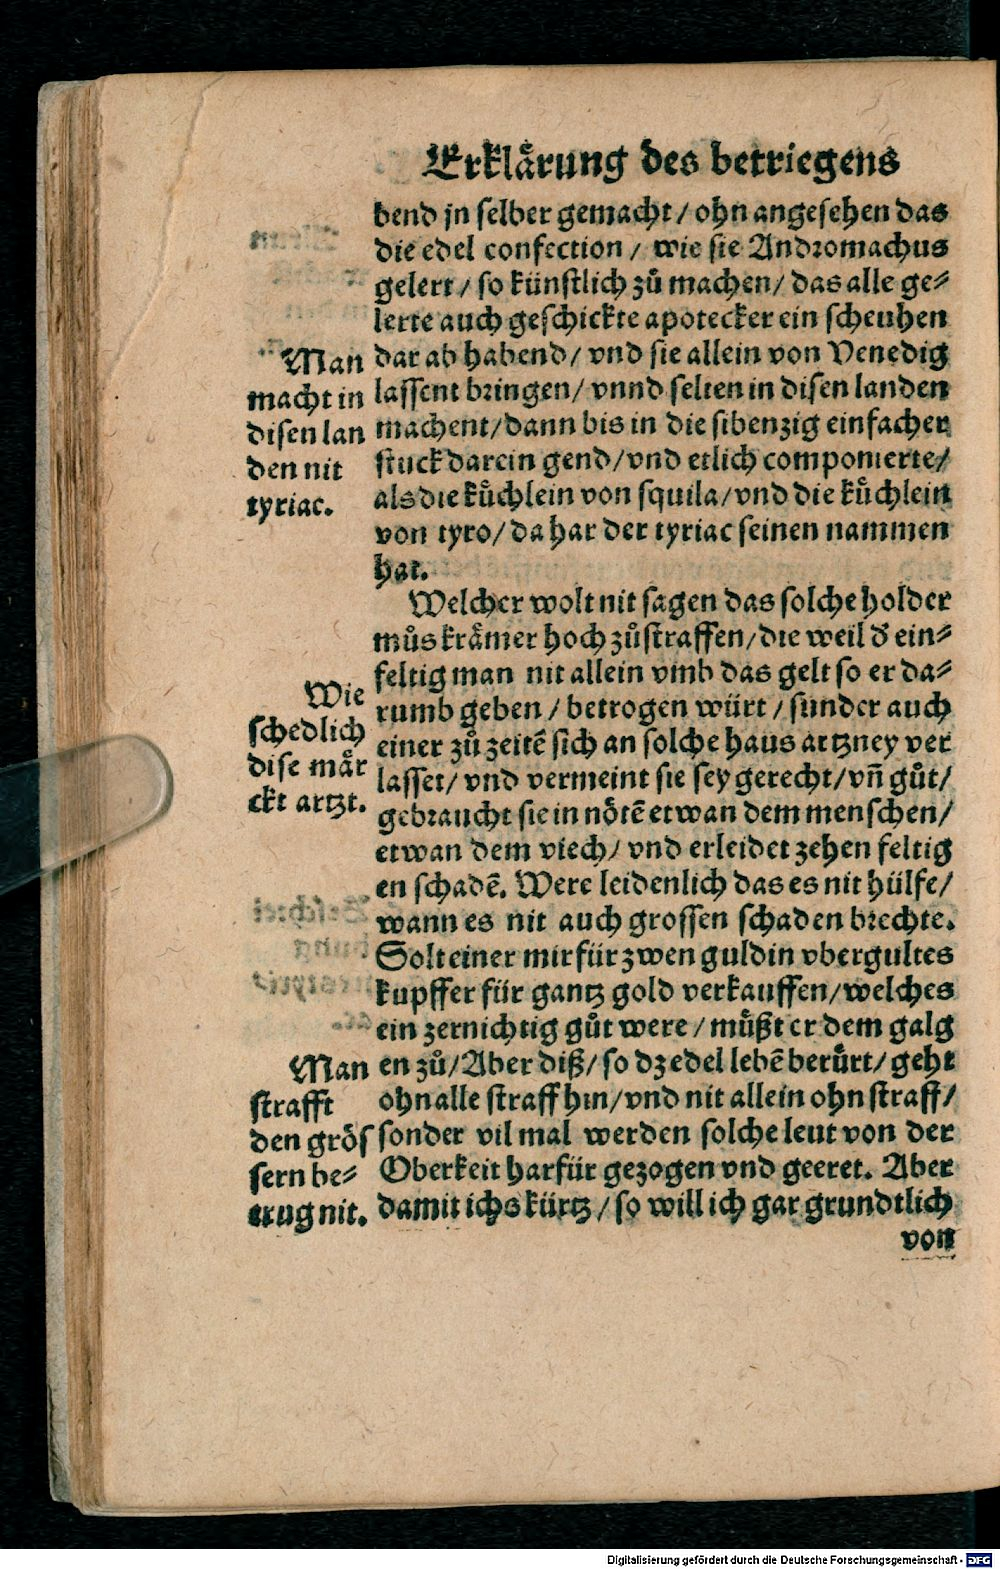 Erklårung des betriegens
bend jn selber gemacht / ohn angesehen das
die edel confection / wie sie Andromachus
gelert / so künstlich zů machen / das alle ge⸗
lerte auch geschickte apotecker ein scheuhen
dar ab habend / vnd sie allein von Venedig
lassent bringen / vnnd selten in disen landen
machent / dann bis in die sibenzig einfacher
stuck darein gend / vnd etlich componierte /
als die kůchlein von squila / vnd die kůchlein
von tyro / da har der tyriac seinen nammen
hat.
Man
macht in
disen lan
den nit
tyriac.
Welcher wolt nit sagen das solche holder
můs kråmer hoch zůstraffen / die weil d ein⸗
feltig man nit allein vmb das gelt so er da⸗
rumb geben / betrogen würt / sunder auch
einer zů zeitē sich an solche haus artzney ver
lasset / vnd vermeint sie sey gerecht / vn̄ gůt /
gebraucht sie in nötē etwan dem menschen /
etwan dem viech / vnd erleidet zehen feltig
en schadē. Were leidenlich das es nit hülfe /
wann es nit auch grossen schaden brechte.
Solt einer mir für zwen guldin vbergultes
kupffer für gantz gold verkauffen / welches
ein zernichtig gůt were / müßt er dem galg
en zů / Aber diß / so dz edel lebē berürt / geht
ohn alle straff hin / vnd nit allein ohn straff /
sonder vil mal werden solche leut von der
Oberkeit harfür gezogen vnd geeret. Aber
damit ichs kürtz / so will ich gar grundtlich
von
Wie
schedlich
dise mår
ckt artzt.
Man
strafft
den grös
sern be⸗
trug nit.
Digitalisierung gefördert durch die Deutsche Forschungsgemeinschaft - DFG